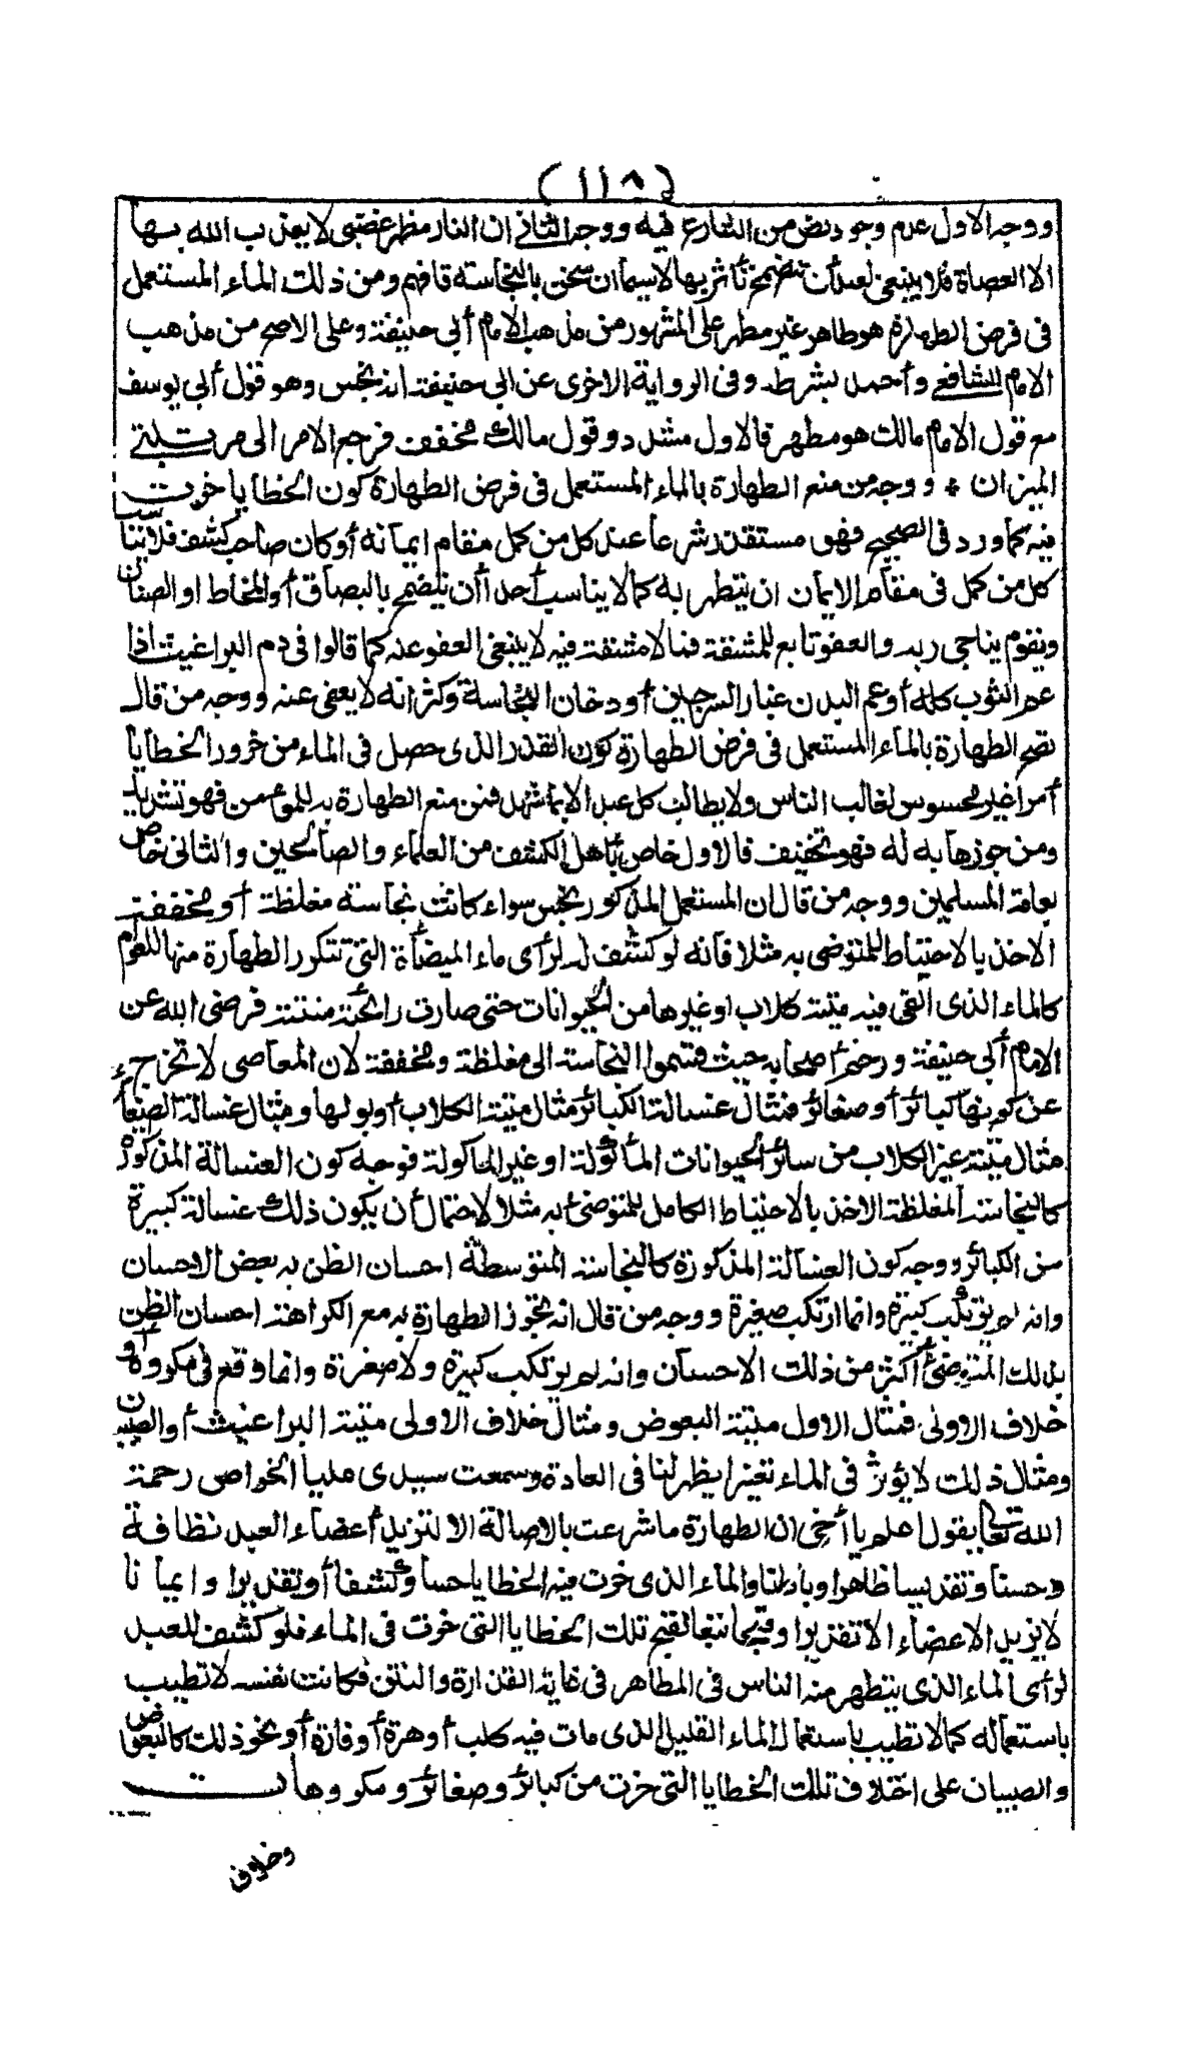 (١١٨)
ووجه الاول عدم وجود نص من الشارع فيه ووجه الثاني ان النار مظهر غضبى لا يعذب الله بها
الا العصاة فلا ينبغى لعبد أن يتضمخ بأثر بها لاسيما ان سخن بالنجاسة فافهم ومن ذلك الماء المستعمل
فى فرض الطهارة هو طاهر غير مطهر على المشهور من مذهب الامام أبى حنيفة وعلى الاصح من مذهب
الامام الشافعى وأحمد بشرط وفى الرواية الاخرى عن ابى حنيفة انه نجس وهو قول أبى يوسف
مع قول الامام مالك هو مطهر فالاول مشدد وقول مالك مخفف فرجع الامر الى مرتبتى
الميزان * ووجه من منع الطهارة بالماء المستعمل فى فرض الطهارة كون الخطايا خرت
فيه كما ورد فى الصحيح فهو مستقذر شرعا عند كل من كمل مقام ايمانه أو كان صاحب كشف فلا يناسب
كل من كمل فى مقام الايمان ان يتطهر به كما لا يناسب أحدا أن يتضمخ بالبصاق أو المخاط او الصنان
ويقوم يناجى ربه والعفو تابع للمشقة فما لا مشقة فيه لا ينبغى العفو عنه كما قالوا فى دم البراغيث اذا
عم الثوب كله أو عم البدن غبار السرجين أو دخان النجاسة وكثر انه لا يعفى عنه ووجه من قال
تصح الطهارة بالماء المستعمل فى فرض الطهارة كون القذر الذى حصل فى الماء من خرور الخطايا
أمرا غير محسوس لغالب الناس ولا يطالب كل عبد الا بما شهد فمن منع الطهارة به للمؤمن فهو تشديد
ومن جوزها به له فهو تخفيف فالاول خاص بأهل الكشف من العلماء والصالحين والثانى خاص
بعامة المسلمين ووجه من قال ان المستعمل المذكور نجس سواء كانت نجاسة مغلظة أو مخففة
الاخذ بالاحتياط للمتوضى به مثلا فانه لو كشف له لرأى ماء الميضأة التى تتكرر الطهارة منها للقوم
كالماء الذى القى فيه ميتة كلاب او غيرها من الحيوانات حتى صارت رائحته منتنة فرضى الله عن
الامام أبى حنيفة ورحم أصحابه حيث قسموا النجاسة الى مغلظة ومخففة لان المعاصى لا تخرج
عن كونها كبائر أو صغائر فمثال غسالة الكبائر مثال ميتة الكلاب أو بولها ومثال غسالة الصغائر
مثال ميتة غير الكلاب من سائر الحيوانات المأكولة او غير المأكولة فوجه كون الغسالة المذكورة
كالنجاسة المغلظة الاخذ بالاحتياط الكامل للمتوضئ به مثلا لاحتمال أن يكون ذلك غسالة كبيرة
من الكبائر ووجه كون الغسالة المذكورة كالنجاسة المتوسطة احسان الظن به بعض الاحسان
وانه لم يرتكب كبيرة وانما ارتكب صغيرة ووجه من قال انه تجوز الطهارة به مع الكراهة احسان الظن
بذلك المتوضئ أكثر من ذلك الاحسان وانه لم يرتكب كبيرة ولا صغيرة وانما وقع فى مكروه أو
خلاف الاولى فمثال الاول ميتة البعوض ومثال خلاف الاولى ميتة البراغيث أو الصيبان
ومثال ذلك لا يؤثر فى الماء تغيرا يظهر لنا فى العادة وسمعت سيدى عليا الخواص رحمة
الله تعالى يقول اعلم يا أخى ان الطهارة ما شرعت بالاصالة الا لتزيد أعضاء العبد نظافة
وحسنا وتقديسا ظاهرا وباطنا والماء الذى خرت فيه الخطايا حسا وكشفا أو تقديرا وايمانا
لا يزيد الاعضاء الا تقذيرا وقبحا تبعا لقبح تلك الخطايا التى خرت فى الماء فلو كشف للعبد
لرأى الماء الذى يتطهر منه الناس فى المطاهر فى غاية القذارة والنتن فكانت نفسه لا تطيب
باستعماله كما لا تطيب باستعمال الماء القليل الذى مات فيه كلب أو هرة أو فارة أو نحو ذلك كالبعوض
والصيبان على اختلاف تلك الخطايا التى خرت من كبائر وصغائر ومكروهات
وخلاف